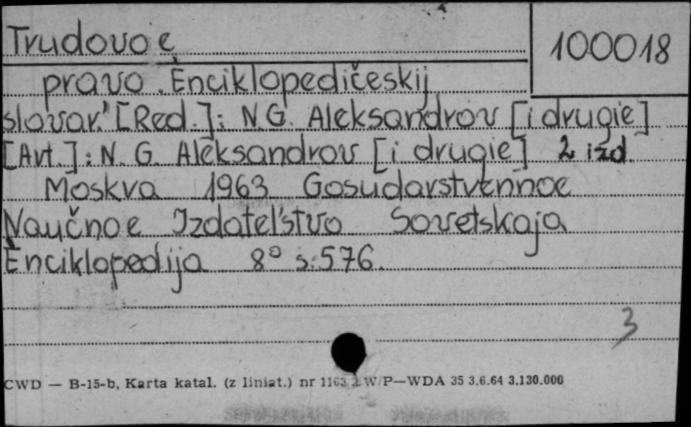 Trudovoe
100018
pravo. Enciklopedičeskij
slovar.' [Red.]: N.G. Aleksandrov [i drugie]
[Avt.]: N. G. Aleksandrov [i drugie] 2 izd.
Moskva 1963 Gosudarstvennoe
Naučnoe Izdatel'stvo Sovetskaja
Enciklopedija 8° s. 576.
3
CWD — B-15-b, Karta katal. (z liniat.) nr 1163 2 W/P—WDA 35 3.6.64 3.130.000